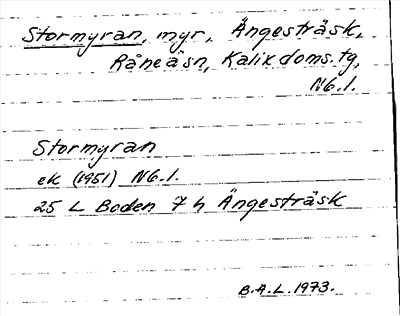 Stormyran, myr, Ängesträsk,
Råneå sn, Kalix doms. tg,
Nb. l.
Stormyran
ek (1951) Nb. l.
25 L Boden 7 h Ängesträsk
B.A.L. 1973.